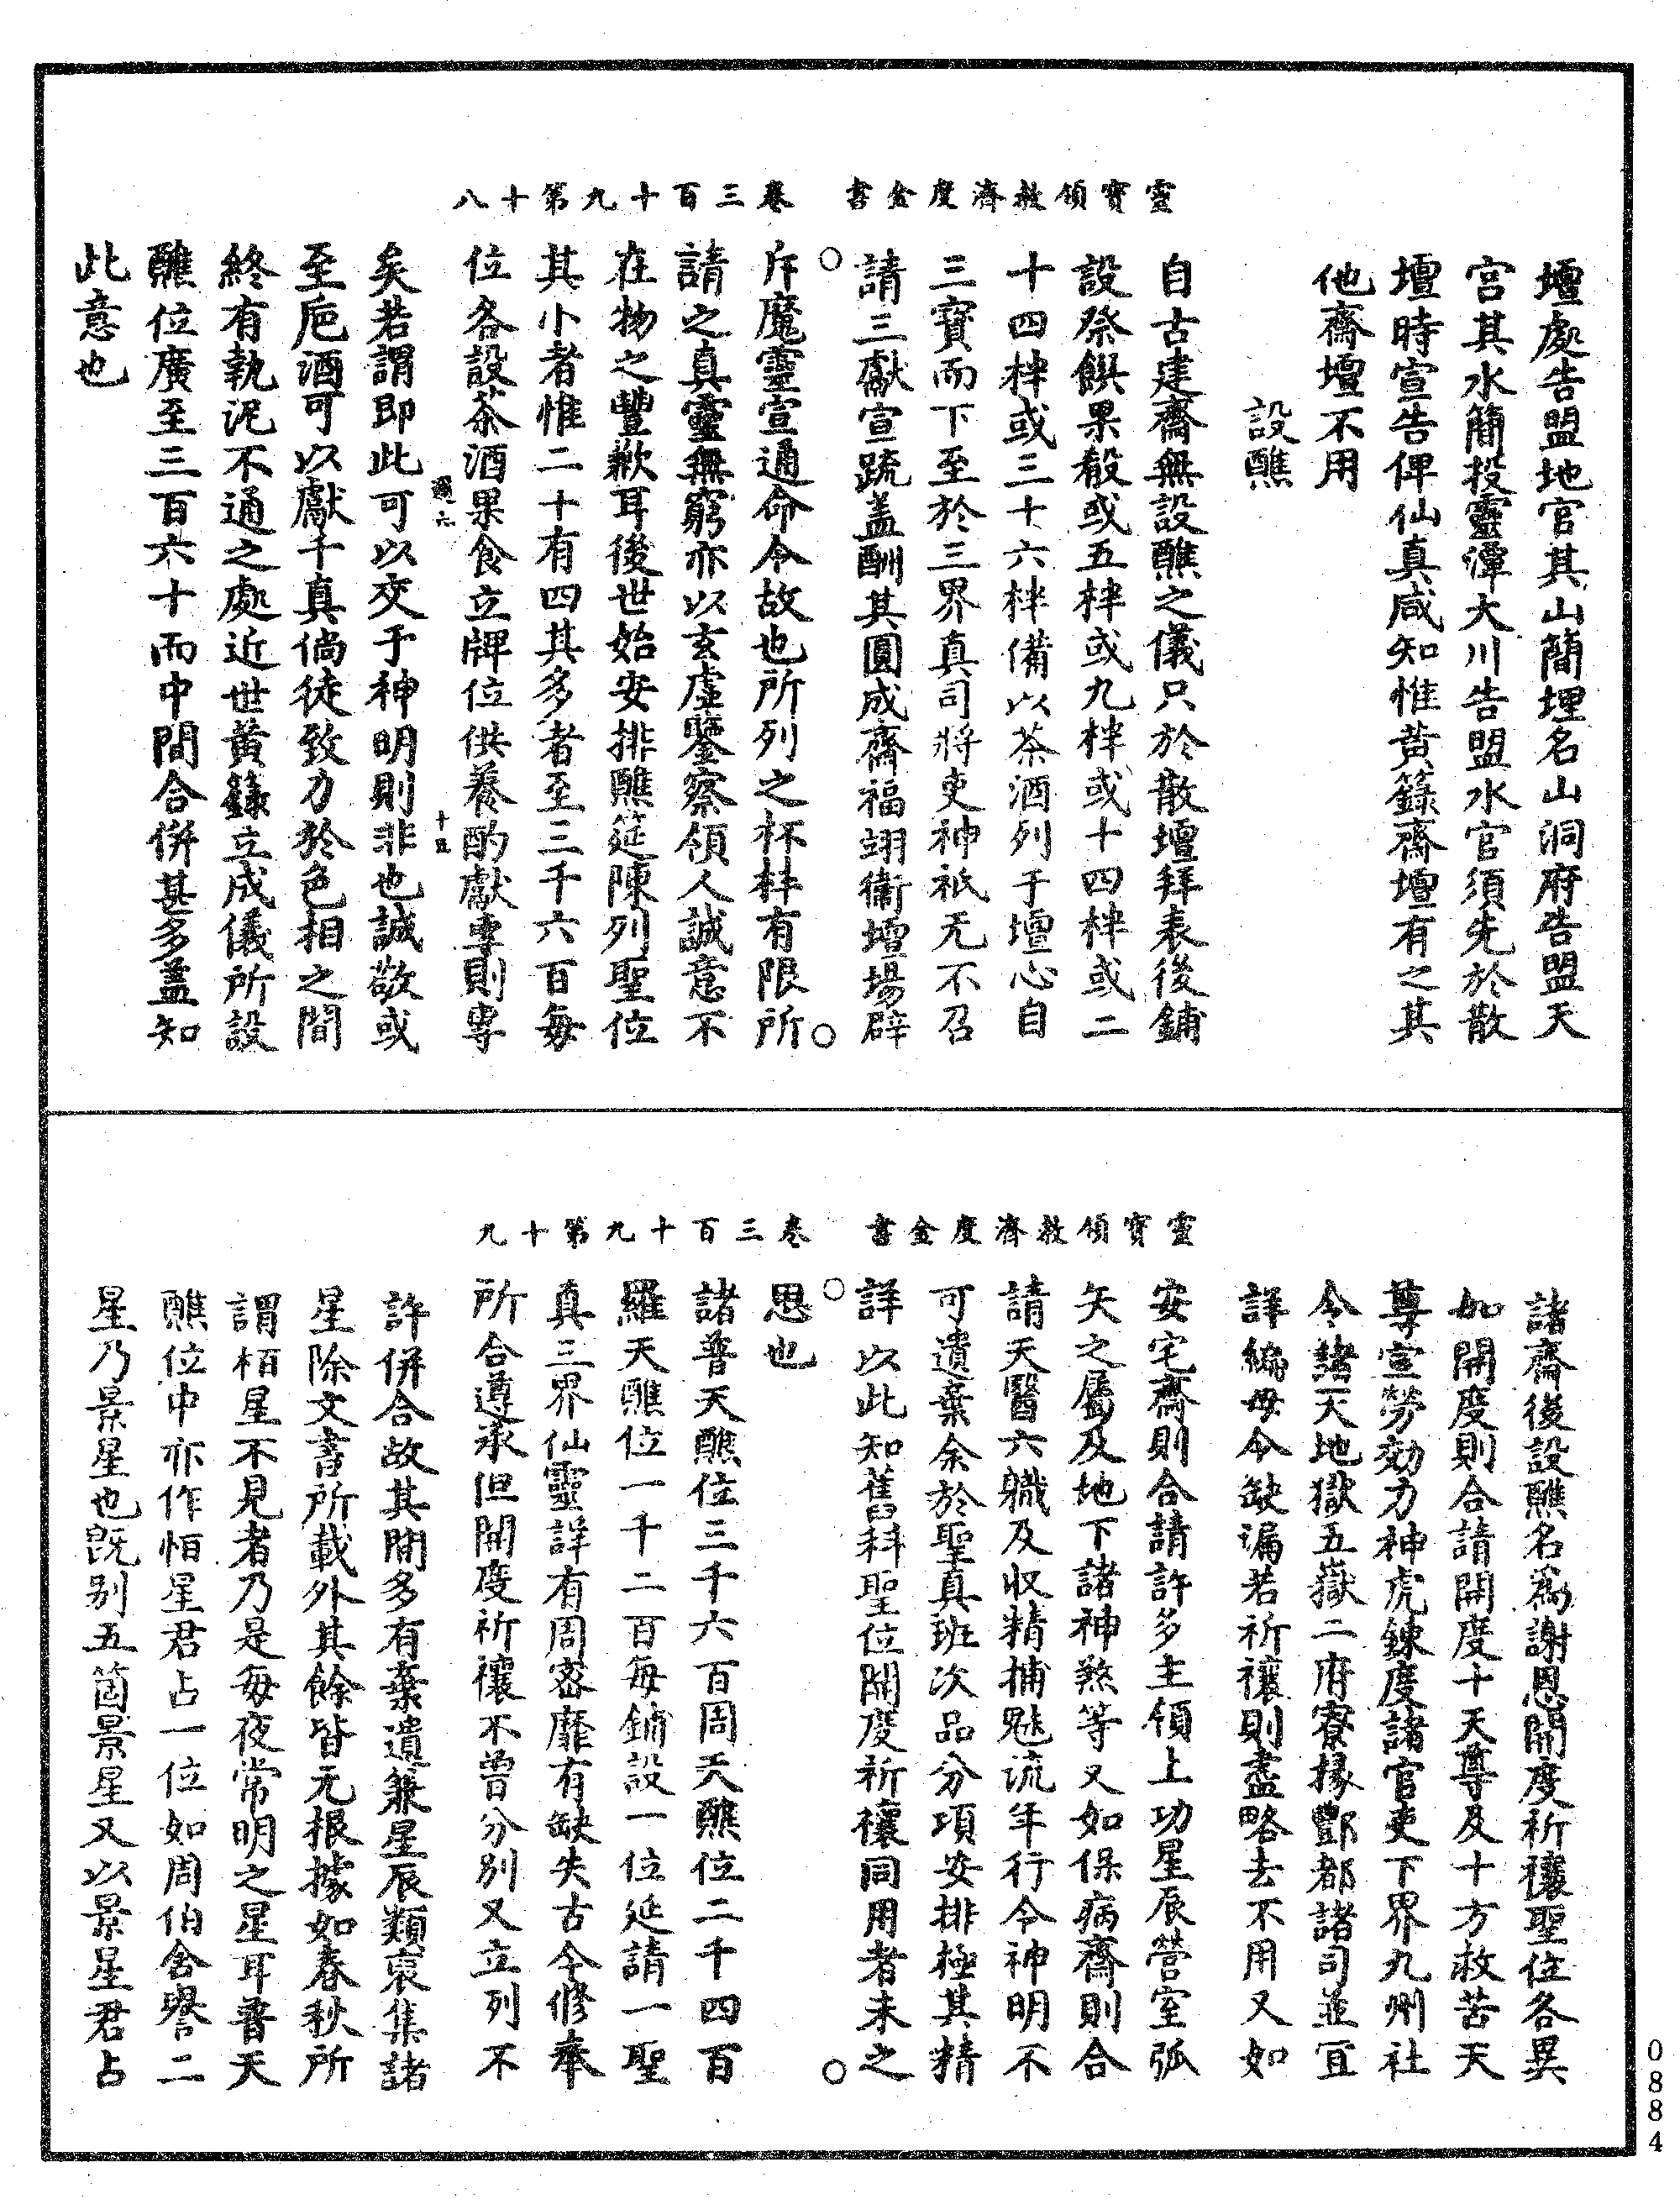 靈寶領教濟度金書　卷三百十九第十八
壇處告盟地官其山簡埋名山洞府告盟天
宫其水簡投靈潭大川告盟水官須先於散
壇時宣告俾仙真咸知惟黄籙齋壇有之其
他齋壇不用
設醮
自古建齋無設醮之儀只於散壇拜表後鋪
設祭饌果殽或五柈或九柈或十四柈或二
十四柈或三十六柈備以茶酒列于壇心自
三寶而下至於三界真司將吏神祇无不召
請三獻宣疏盖酬其圓成齋福翊衛壇場辟
斥魔靈宣通命令故也所列之杯柈有限所
請之真靈無窮亦以玄虚鑒察領人誠意不
在物之豐歉耳後世始安排醮筵陳列聖位
其小者惟二十有四其多者至三千六百每
位各設茶酒果食立牌位供養酌獻專則專
矣若謂即此可以交于神明則非也誠敬或
至巵酒可以獻千真倘徒致力於色相之間
終有執泥不通之處近世黄籙立成儀所設
醮位廣至三百六十而中間合併甚多盖知
此意也
靈寶領教濟度金書　卷三百十九第十九
諸齋後設醮名爲謝恩開度祈禳聖位各異
如開度則合請開度十天尊及十方救苦天
尊宣勞効力神虎鍊度諸官吏下界九州社
令諸天地獄五嶽二府寮掾酆都諸司並宜
詳編毋令缺漏若祈禳則盡略去不用又如
安宅齋則合請許多主領上功星辰營室弧
矢之屬及地下諸神煞等又如保病齋則合
請天醫六職及収精捕魅流年行令神明不
可遺棄余於聖真班次品分項安排極其精
詳以此知舊科聖位開度祈禳同用者未之
思也
諸普天醮位三千六百周天醮位二千四百
羅天醮位一千二百每鋪設一位延請一聖
真三界仙靈詳有周密靡有缺失古今修奉
所合遵承但開度祈禳不曾分別又立列不
許併合故其間多有棄遺兼星辰類裒集諸
星除文書所載外其餘皆无根據如春秋所
謂栢星不見者乃是每夜常明之星耳普天
醮位中亦作恒星君占一位如周伯舍譽二
星乃景星也既别五箇景星又以景星君占
0884